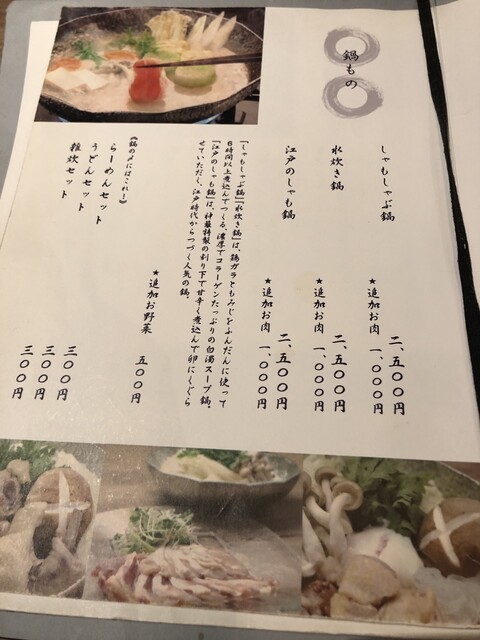 鍋もの
しゃもしゃぶ鍋 二、五〇〇円
★追加お肉 一、〇〇〇円
水炊き鍋 二、五〇〇円
★追加お肉 一、〇〇〇円
江戸のしゃも鍋 二、五〇〇円
★追加お肉 一、〇〇〇円
「しゃもしゃぶ鍋」「水炊き鍋」は、鶏ガラともみじをふんだんに使って
8時間以上煮込んでつくる、濃厚でコラーゲンたっぷりの白濁スープ鍋。
「江戸のしゃも鍋」は、神雞特製の割り下で甘辛く煮込んで卵にくぐら
せていただく、江戸時代からつづく人気の鍋。
★追加お野菜 五〇〇円
《鍋の〆にはこれ!》
らーめんセット 三〇〇円
うどんセット 三〇〇円
雑炊セット 三〇〇円